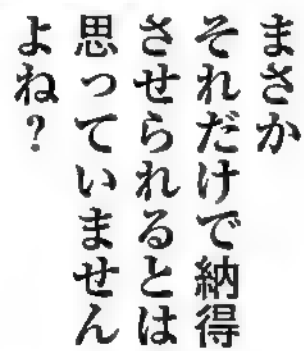 まさか
それだけで納得
させられるとは
思っていません
よね?